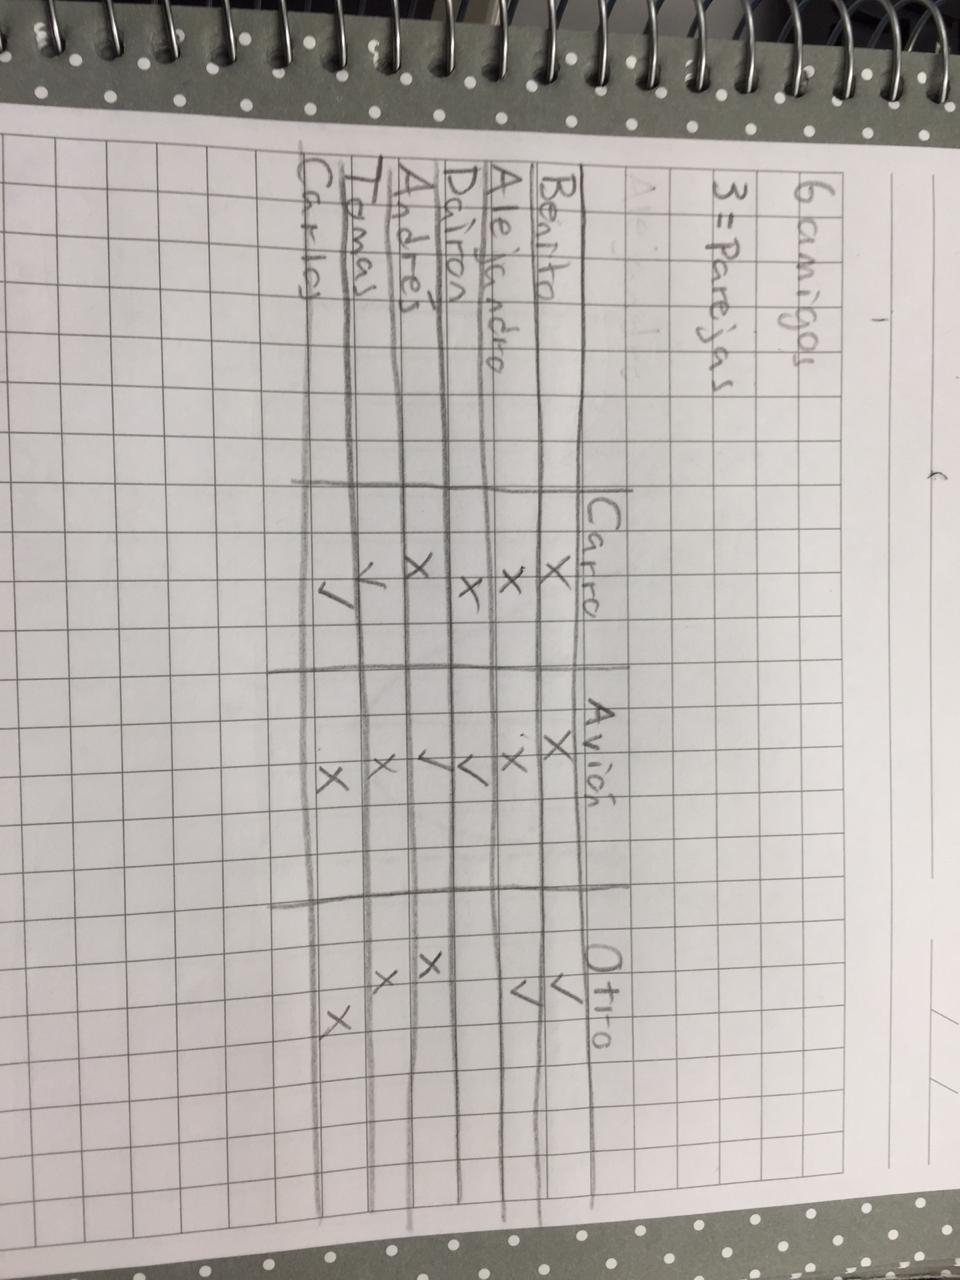 6 amigos
3 = Parejas
Carro Avión Otro
Benito X X ✓
Alejandro X X ✓
Dairon X ✓
Andrés X ✓ X
Tomas ✓ X X
Carlos ✓ X X